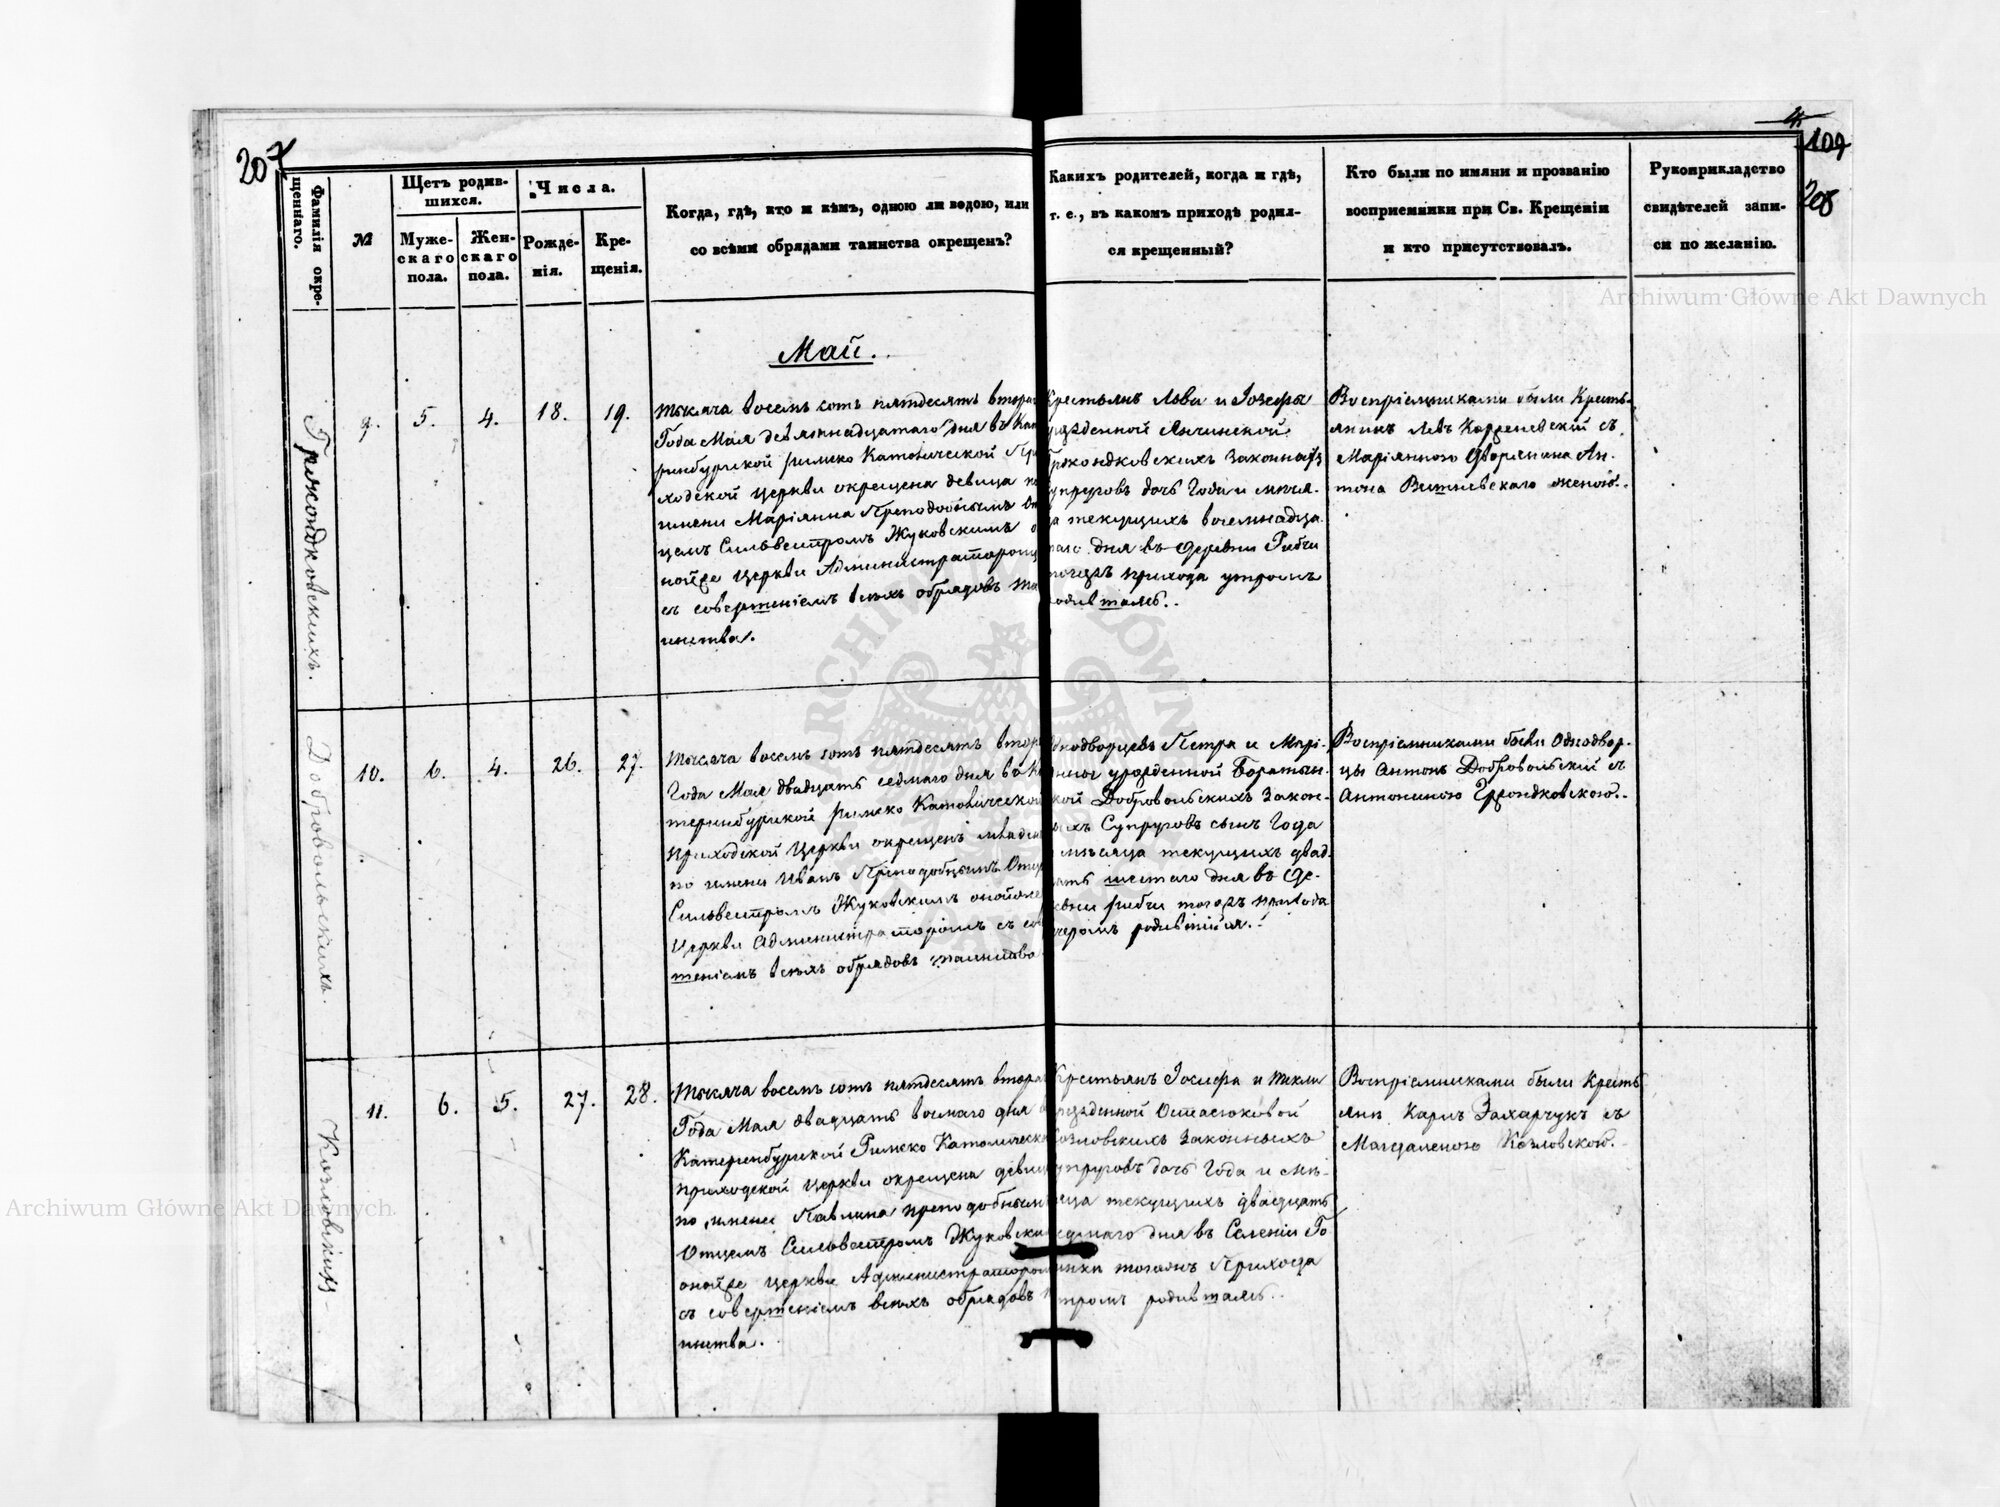 207
4
109
208
Фамилія окре-
щеннаго.
№
Щетъ родив-
шихся.
Муже-
скаго
пола.
Жен-
скаго
пола.
Числа.
Рожде-
нія.
Кре-
щенія.
Когда, гдѣ, кто и кѣмъ, одною ли водою, или
со всѣми обрядами таинства окрещенъ?
Какихъ родителей, когда и гдѣ,
т. е., въ какомъ приходѣ родил-
ся крещенный?
Кто были по имяни и прозванію
восприемники при Св. Крещеніи
и кто присутствовалъ.
Рукоприкладство
свидѣтелей запи-
си по желанію.
Archiwum Główne Akt Dawnych
Май.
9.
5.
4.
18.
19.
Тысяча восемь сотъ пятдесятъ втора
Года Мая девятнадцатаго дня въ Кат
ринбургской римско Католической Пр
ходской Церкви окрещена девица по
имени Маріянна Преподобнымъ От
цемъ Сильвестромъ Жуковскимъ о
нойже Церкви Администраторомъ
съ совершеніемъ всѣхъ обрядовъ та
инства.
Крестьянъ Льва и Іозефы
урожденной Янчинской
законных
супруговъ дочь Года и меся-
ца текущихъ восемнадца
таго дня въ Деревни Рибчи
тогожъ прихода утромъ
родившаясь.
Воспріемниками были Кресть-
янинъ Левъ съ
Маріянною Дворянина Ан-
тона женою.
Добровольскихъ.
10.
6.
4.
26.
27.
Тысяча восемь сотъ пятдесятъ втор
Года Мая двадцать седмаго дня въ Ка
теринбургской римско Католической
приходской Церкви окрещенъ младен
по имени Иванъ Преподобнымъ Отце
Сильвестромъ Жуковскимъ онойже
Церкви Администраторомъ съ сов
шеніемъ всѣхъ обрядовъ таинства
Однодворцевъ Петра и Марі-
янны урожденной
Добровольскихъ Закон-
ныхъ Супруговъ сынъ Года
и мѣсяца текущихъ двад-
цать шестаго дня въ Де-
ревни рибчи тогожъ прихода
вечеромъ родившійся.
Воспріемниками были Однодвор-
цы Антонъ Добровольскій съ
Антониною
Козловскихъ
11.
6.
5.
27.
28.
Тысяча восемь сотъ пятдесятъ втора
Года Мая двадцать восмаго дня в
Катеринбургской Римско Католическо
приходской Церкви окрещена девиц
по имени Павлина преподобным
Отцемъ Сильвестромъ Жуковски
онойже Церкви Администратором
съ совершеніемъ всѣхъ обрядовъ т
инства.
Крестьянъ Іосифа и Текли
урожденной Остасюковой
Козловскихъ Законныхъ
супруговъ дочь Года и мѣ-
сяца текущихъ двадцать
седмаго дня въ Селеніи
тогожъ Прихода
утромъ родившаясь.
Воспріемниками были Кресть
яни Карлъ Захарчукъ съ
Магдаленою Козловскою.
Archiwum Główne Akt Dawnych